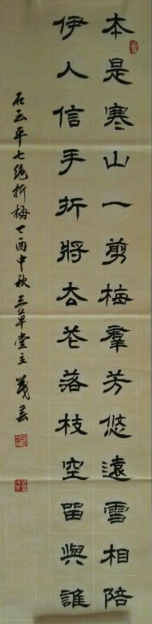 本是寒山一剪梅羣芳悠遠雪相陪
伊人信手折將去花落枝空留與誰
石平七絕折梅丁酉中秋三草堂主義